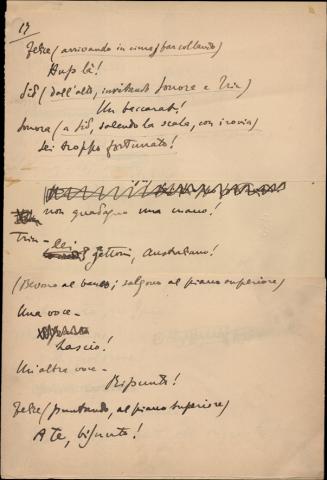 17
Felice (arrivando in cima, barcollando)
Aup là!
Sid (dall'alto, invitando Sonora e Trin)
Un baccarat!
Sonora (a Sid, salendo la scala, con ironia)
Sei troppo fortunato!
non guadagno una mano!
Trin - Lei
gettoni, Australiano!
(Bevono al banco; salgono al piano superiore)
Una voce -
Lascio!
Un'altra voce -
Ripunto!
Felice (puntando, al piano superiore)
A te, bisunto!